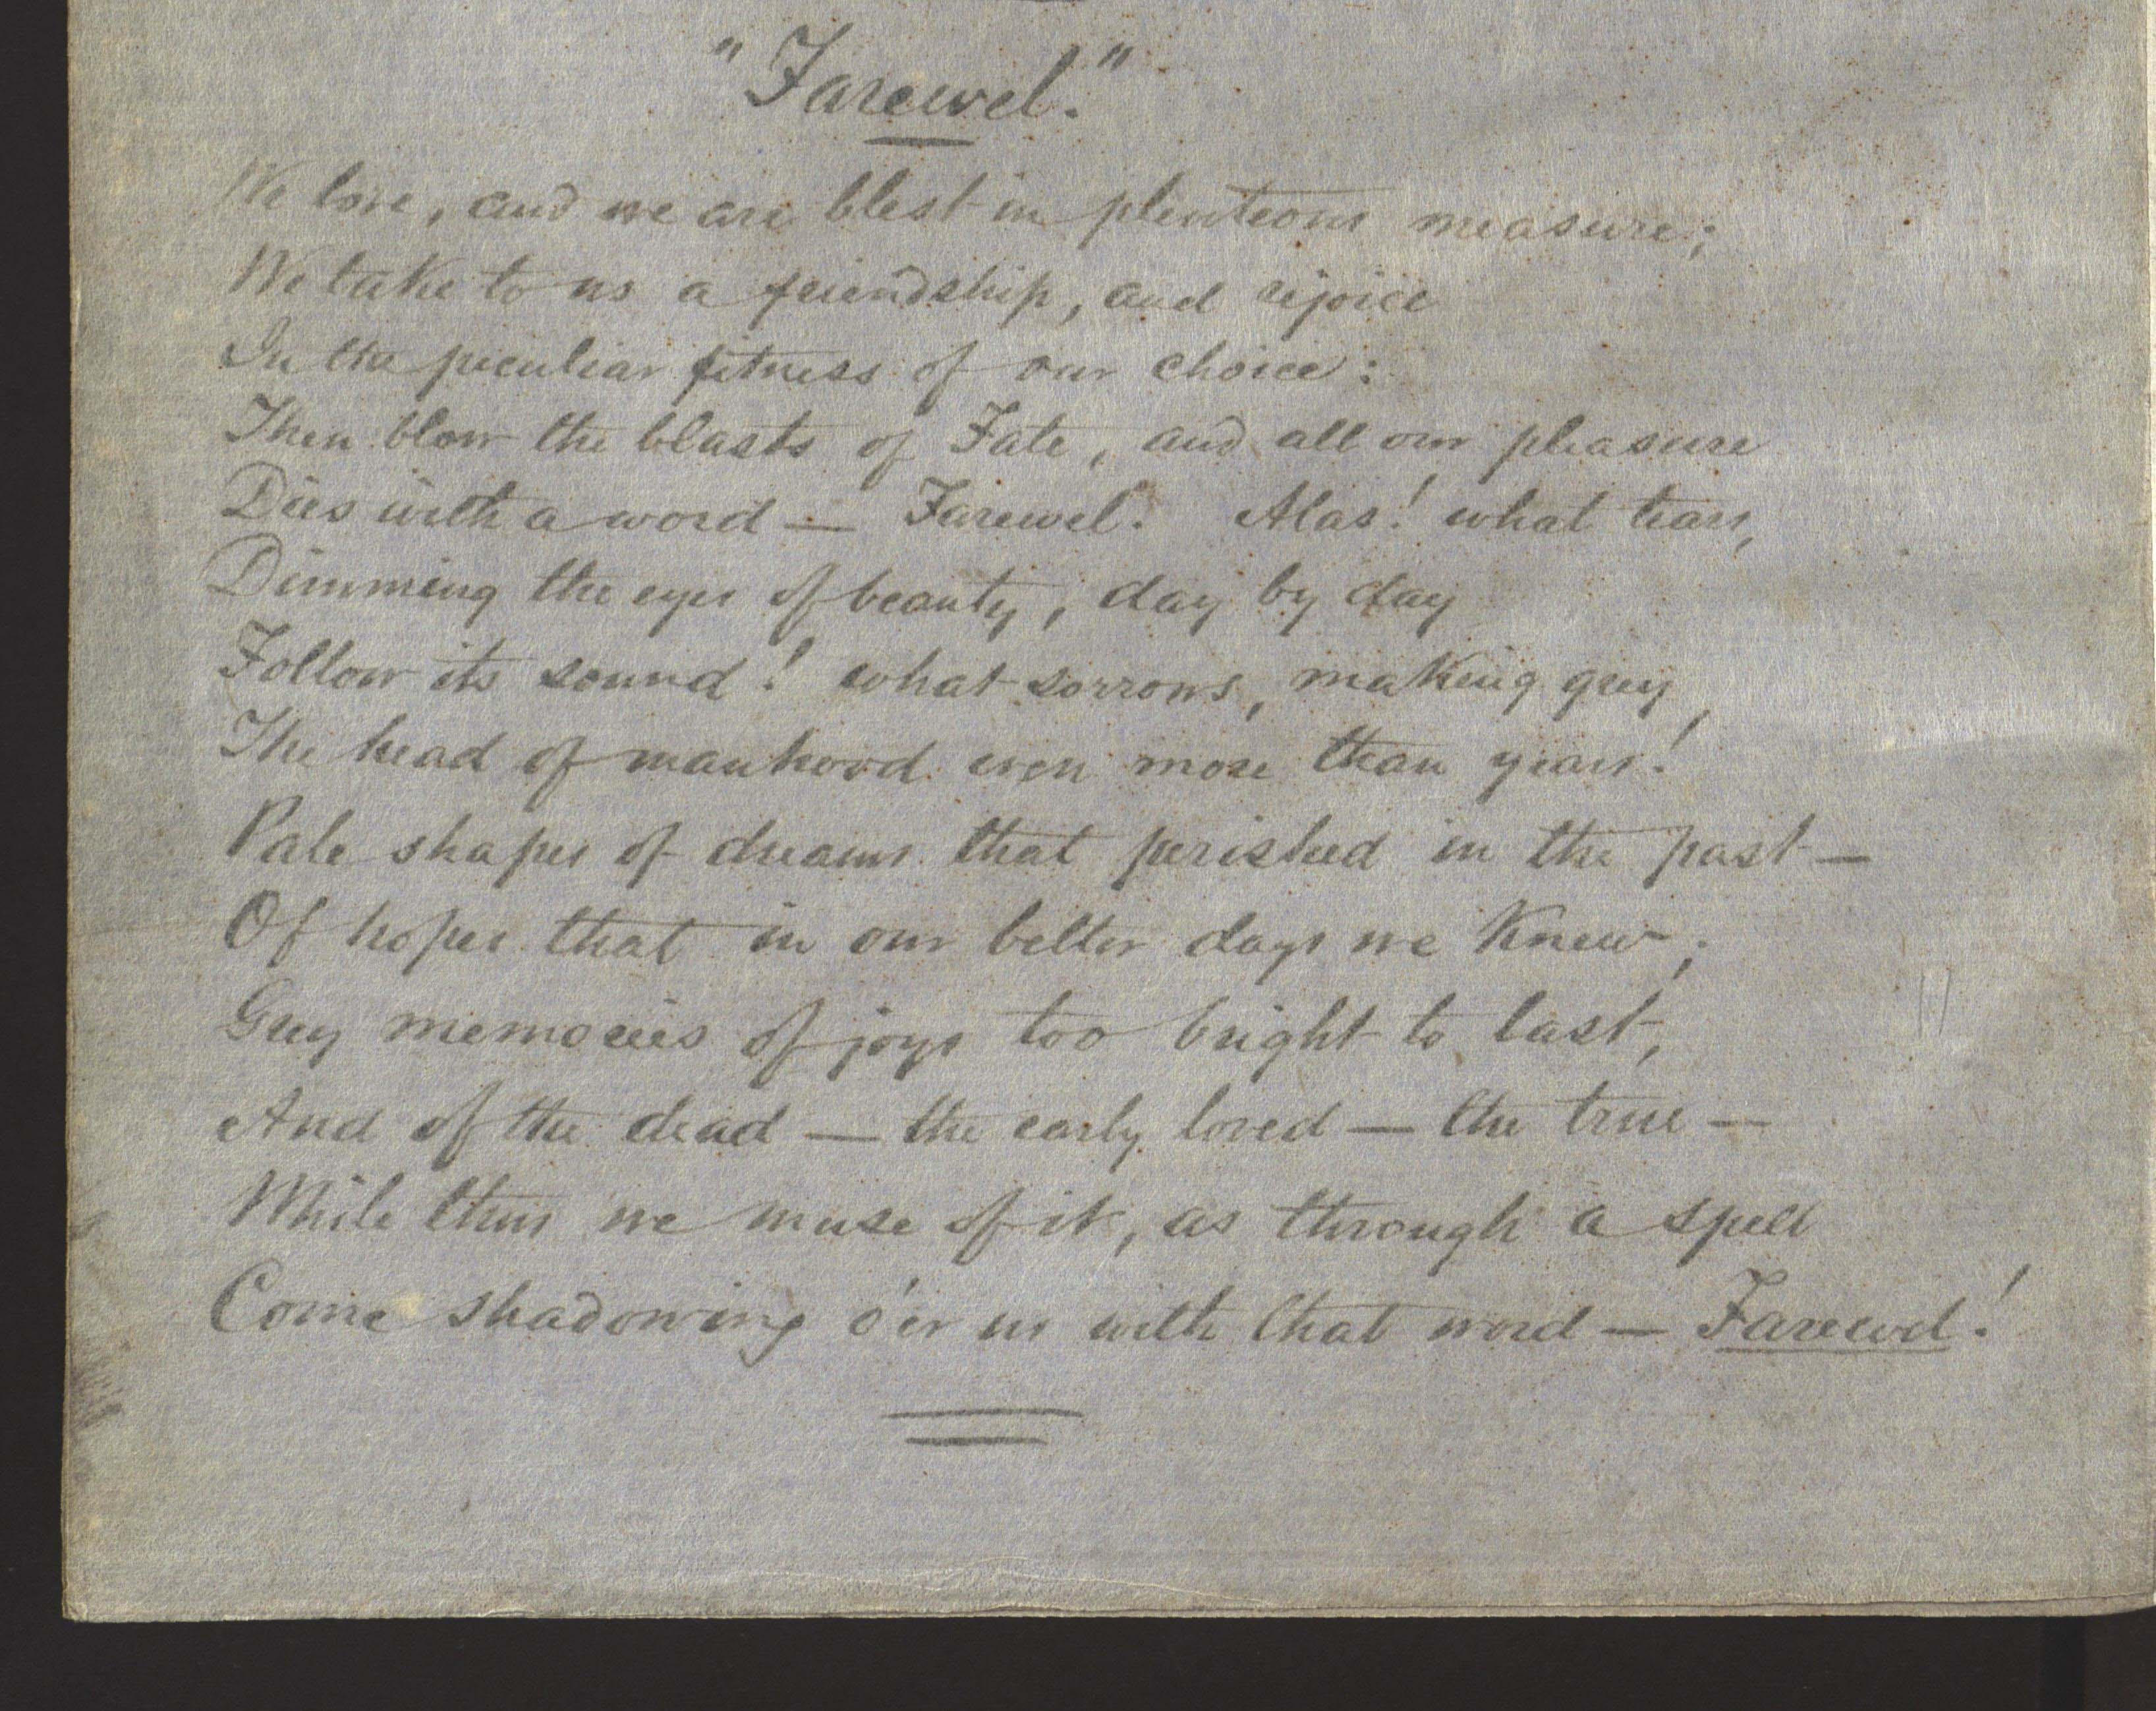 "Farewel."
We love, and we are blest in plenteous measure;
We take to us a friendship, and rejoice
In the peculiar fitness of our choice:
Then blow the blasts of Fate, and all our pleasure
Dies with a word — Farewel. Alas! what tears,
Dimming the eyes of beauty, day by day
Follow its sound! what sorrows, making grey,
The head of manhood even more than years!
Pale shapes of dreams that perished in the past —
Of hopes that in our better days we knew;
Grey memories of joys too bright to last,
And of the dead — the early loved — the true —
While thus we muse of it, as through a spell
Come shadowing o'er us with that word — Farewel!